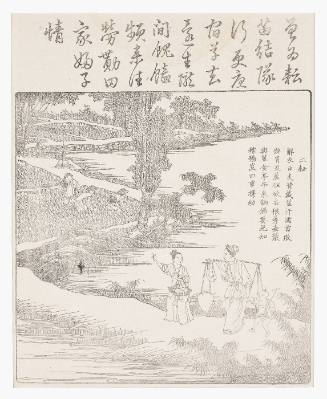 曾為耘
苗結隊
行更憂
宿草去
還生隴
間饁饟
頻來往
勞勩田
家婦子
情
二耘
解衣日炙背戴笠汗濡首敢
辭冒炎蒸但欲去稂莠壺漿
與簞食亭午來餉婦要兒知
稼穡豈曰事攜幼